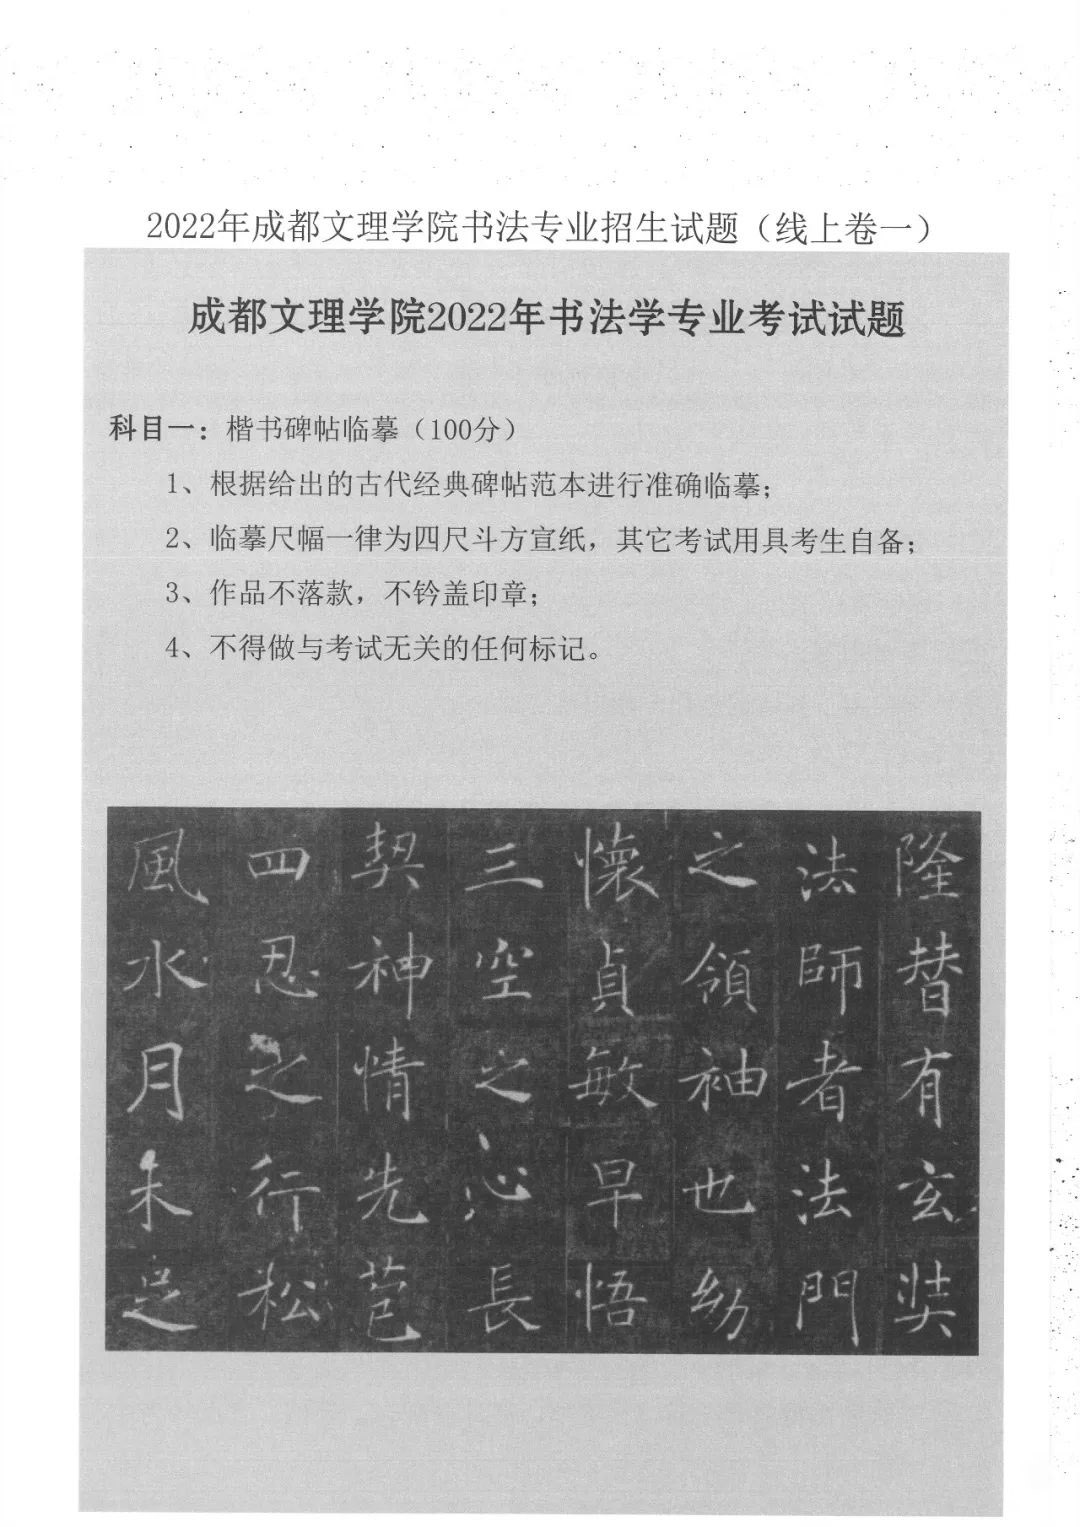 2022年成都文理学院书法专业招生试题（线上卷一）
成都文理学院2022年书法学专业考试试题
科目一：楷书碑帖临摹（100分）
1、根据给出的古代经典碑帖范本进行准确临摹；
2、临摹尺幅一律为四尺斗方宣纸，其它考试用具考生自备；
3、作品不落款，不钤盖印章；
4、不得做与考试无关的任何标记。
隆替有玄奘
法師者法門
之領袖也幼
懷貞敏早悟
三空之心長
契神情先苞
四忍之行松
風水月未足